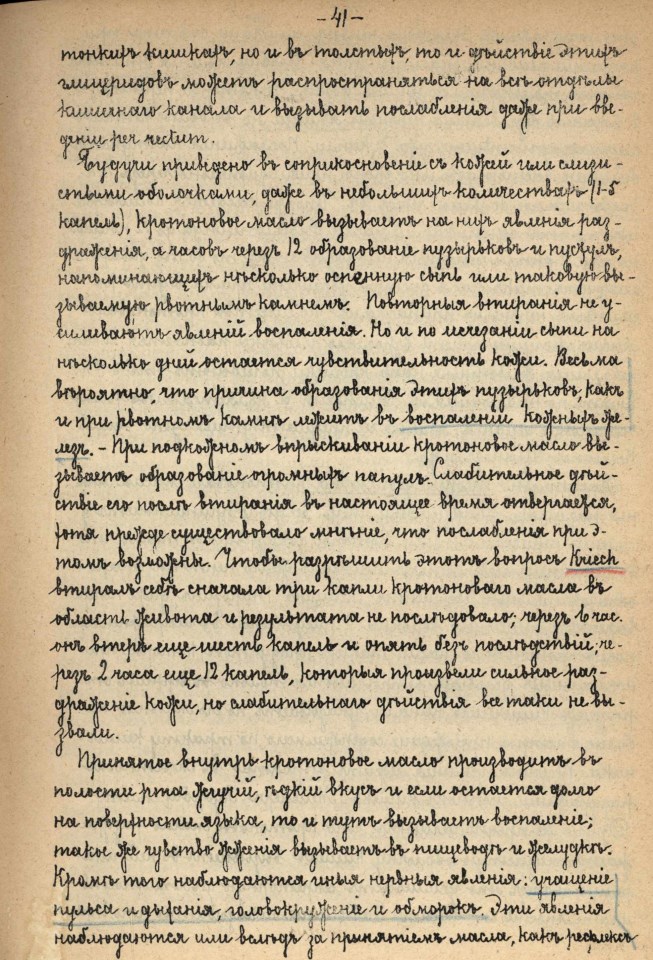 -41-
тонкихъ кишкахъ, но и въ толстыхъ, то и дѣйствіе этихъ
глицеридовъ можетъ распространяться на всѣ отдѣлы
кишечнаго канала и вызывать послабленія даже при вве-
деніи per rectum.
Будучи приведено въ соприкосновеніе съ кожей или слизи-
стыми оболочками, даже въ небольшихъ количествахъ (1-5
капель), кротоновое масло вызываетъ на нихъ явленія раз-
драженія, а часовъ черезъ 12 образованіе пузырьковъ и пустулъ,
напоминающихъ нѣсколько оспенную сыпь или таковую вы-
зываемую рвотнымъ камнемъ. Повторныя втиранія не у-
силиваютъ явленій воспаленія. Но и по исчезаніи сыпи на
нѣсколько дней остается чувствительность кожи. Весьма
вѣроятно, что причина образованія этихъ пузырьковъ, какъ
и при рвотномъ камнѣ лежитъ въ воспаленіи кожныхъ же-
лезъ. - При подкожномъ впрыскиваніи кротоновое масло вы-
зываетъ образованіе огромныхъ папулъ. Слабительное дѣй-
ствіе его послѣ втиранія въ настоящее время отвергается,
хотя прежде существовало мнѣніе, что послабленія при э-
томъ возможны. Чтобы разрѣшить этотъ вопросъ Kriech
втиралъ себѣ сначала три капли кротоноваго масла въ
область живота и результата не послѣдовало; черезъ 1 час.
онъ втеръ еще шесть капель и опять безъ послѣдствій; че-
резъ 2 часа еще 12 капель, которыя произвели сильное раз-
драженіе кожи, но слабительнаго дѣйствія все таки не вы-
звали.
Принятое внутрь кротоновое масло производитъ въ
полости рта жгучій, ѣдкій вкусъ и если остается долго
на поверхности языка, то и тутъ вызываетъ воспаленіе;
такое же чувство жженія вызываетъ въ пищеводѣ и желудкѣ.
Кромѣ того наблюдаются иныя нервныя явленія: учащеніе
пульса и дыханія, головокруженіе и обморокъ. Эти явленія
наблюдаются или вслѣдъ за принятіемъ масла, какъ рефлексъ